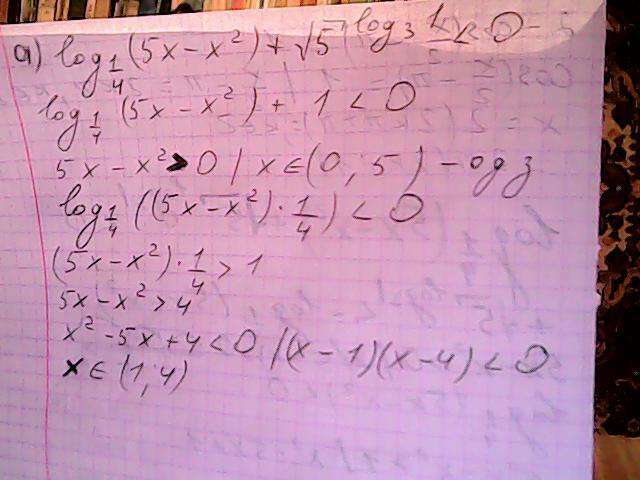 а) log_{1/4}(5x-x²)+√5^{log_3 1}<0
log_{1/4}(5x-x²)+1<0
5x-x²>0 / x∈(0;5) - одз
log_{1/4}((5x-x²)·1/4)<0
(5x-x²)·1/4>1
5x-x²>4
x²-5x+4<0 /(x-1)(x-4)<0
x∈(1;4)